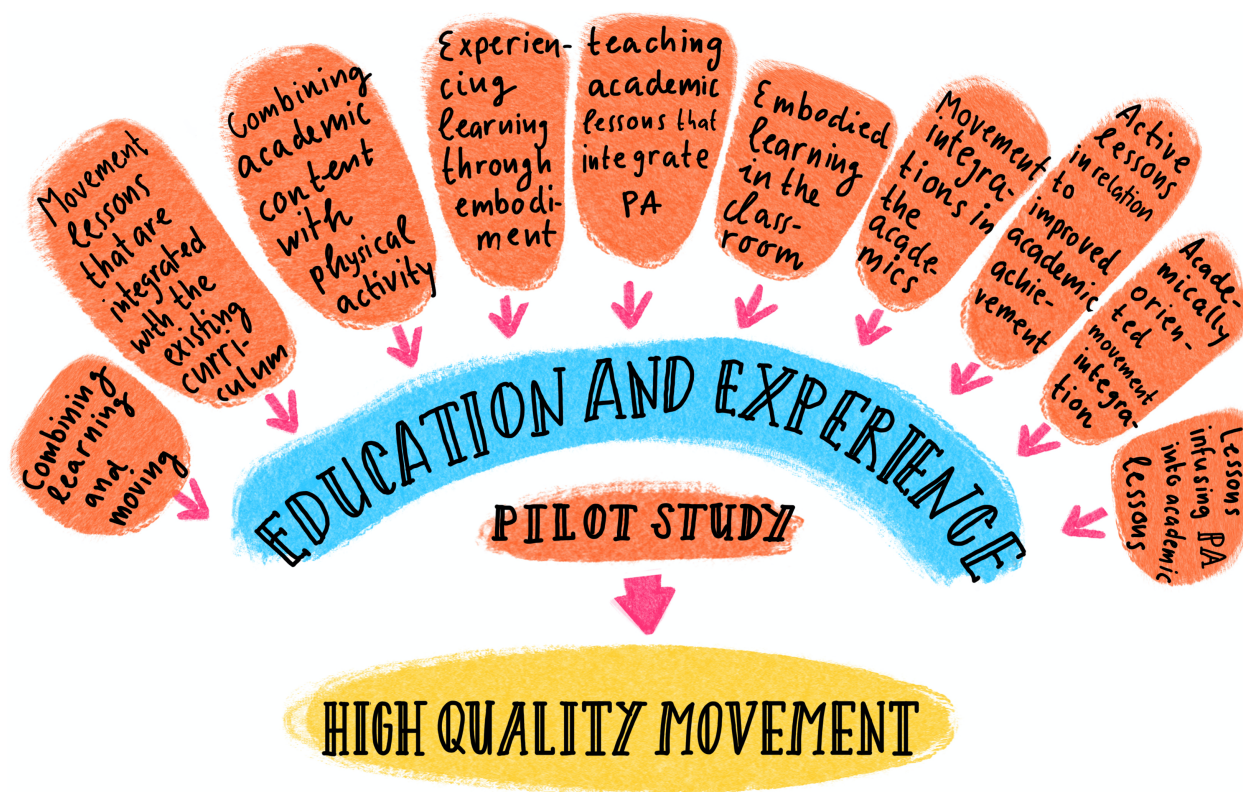 Combining
learning
and
moving
Movement
lessons
that are
integrated
with the
existing
curri-
culum
Combining
academic
content
with
physical
activity
Experien-
cing
learning
through
embodi-
ment
teaching
academic
lessons that
integrate
PA
Embodied
learning
in the
class-
room
Movement
integra-
tions in
the
acade-
mics
Active
lessons
in relation
to
improved
academic
achie-
vement
Acade-
mically
orien-
ted
movement
integra-
tion
Lessons
infusing PA
into academic
lessons
EDUCATION AND EXPERIENCE
PILOT STUDY
HIGH QUALITY MOVEMENT